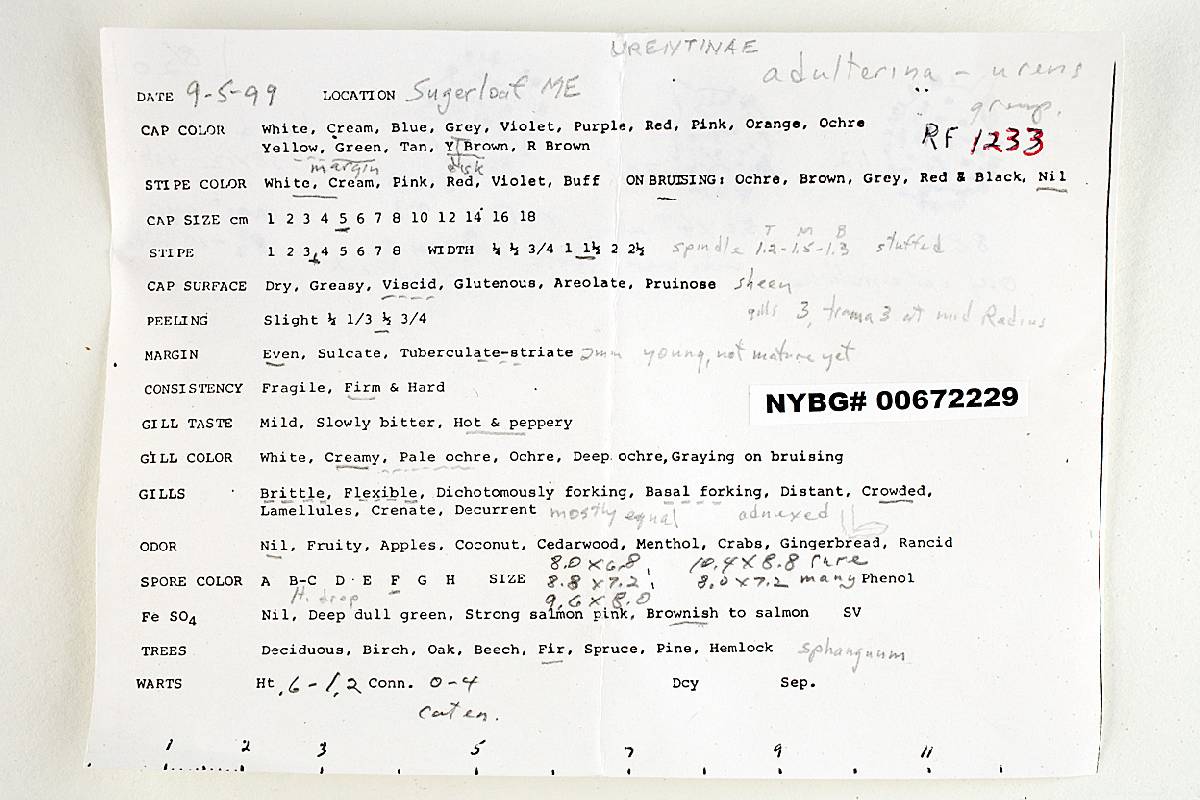 URENTINAE
adulterina - urens
group.
DATE 9-5-99 LOCATION Sugerloaf ME
RF 1233
CAP COLOR White, Cream, Blue, Grey, Violet, Purple, Red, Pink, Orange, Ochre
Yellow, Green, Tan, Y Brown, R Brown
margin disk
STIPE COLOR White, Cream, Pink, Red, Violet, Buff ON BRUISING: Ochre, Brown, Grey, Red & Black, Nil
CAP SIZE cm 1 2 3 4 5 6 7 8 10 12 14 16 18
T M B
STIPE 1 2 3 4 5 6 7 8 WIDTH ¼ ½ 3/4 1 1½ 2 2½ spindle 1.2-1.5-1.3 stuffed
CAP SURFACE Dry, Greasy, Viscid, Glutenous, Areolate, Pruinose sheen
gills 3, trama 3 at mid Radius
PEELING Slight ¼ 1/3 ½ 3/4
MARGIN Even, Sulcate, Tuberculate-striate 2mm young, not mature yet
CONSISTENCY Fragile, Firm & Hard
NYBG# 00672229
GILL TASTE Mild, Slowly bitter, Hot & peppery
GILL COLOR White, Creamy, Pale ochre, Ochre, Deep ochre, Graying on bruising
GILLS Brittle, Flexible, Dichotomously forking, Basal forking, Distant, Crowded,
Lamellules, Crenate, Decurrent mostly equal adnexed
ODOR Nil, Fruity, Apples, Coconut, Cedarwood, Menthol, Crabs, Gingerbread, Rancid
8.0 X 6.8, 10.4 X 8.8 rare
SPORE COLOR A B-C D E F G H SIZE 8.8 X 7.2, 8.0 X 7.2 many Phenol
H. drop 9.6 X 8.0
Fe SO4 Nil, Deep dull green, Strong salmon pink, Brownish to salmon SV
TREES Deciduous, Birch, Oak, Beech, Fir, Spruce, Pine, Hemlock sphangnum
WARTS Ht .6-1.2 Conn. 0-4 Dcy Sep.
caten.
1 2 3 5 7 9 11